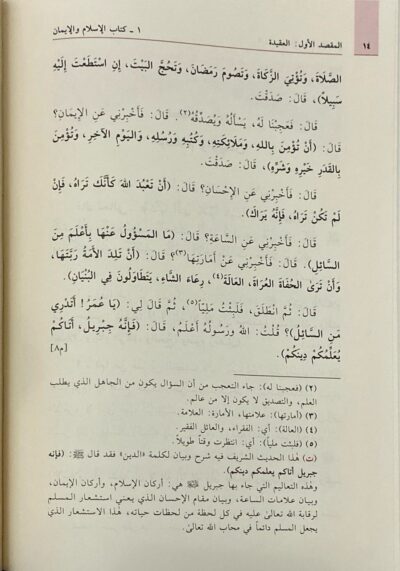 ١٤ المقصد الأول: العقيدة ١ - كتاب الإسلام والإيمان
الصَّلَاةَ، وَتُؤْتِيَ الزَّكَاةَ، وَتَصُومَ رَمَضَانَ، وَتَحُجَّ البَيْتَ، إِنِ اسْتَطَعْتَ إِلَيْهِ
سَبِيلاً)، قَالَ: صَدَقْتَ.
قَالَ: فَعَجِبْنَا لَهُ، يَسْأَلُهُ وَيُصَدِّقُهُ(٢). قَالَ: فَأَخْبِرْنِي عَنِ الإِيمَانِ؟
قَالَ: (أَنْ تُؤْمِنَ بِاللهِ، وَمَلَائِكَتِهِ، وَكُتُبِهِ وَرُسُلِهِ، وَالْيَوْمِ الآخِرِ، وَتُؤْمِنَ
بِالقَدَرِ خَيْرِهِ وَشَرِّهِ)، قَالَ: صَدَقْتَ.
قَالَ: فَأَخْبِرْنِي عَنِ الإِحْسَانِ؟ قَالَ: (أَنْ تَعْبُدَ اللهَ كَأَنَّكَ تَرَاهُ، فَإِنْ
لَمْ تَكُنْ تَرَاهُ، فَإِنَّهُ يَرَاكَ).
قَالَ: فَأَخْبِرْنِي عَنِ السَّاعَةِ؟ قَالَ: (مَا المَسْؤُولُ عَنْهَا بِأَعْلَمَ مِنَ
السَّائِلِ). قَالَ: فَأَخْبِرْنِي عَنْ أَمَارَتِهَا(٣)؟ قَالَ: (أَنْ تَلِدَ الأَمَةُ رَبَّتَهَا،
وَأَنْ تَرَىٰ الحُفَاةَ العُرَاةَ، العَالَةَ(٤)، رِعَاءَ الشَّاءِ، يَتَطَاوَلُونَ فِي البُنْيَانِ).
قَالَ: ثُمَّ انْطَلَقَ، فَلَبِثْتُ مَلِيّاً(٥)، ثُمَّ قَالَ لِي: (يَا عُمَرُ! أَتَدْرِي
مَنِ السَّائِلُ)؟ قُلْتُ: اللهُ وَرَسُولُهُ أَعْلَمُ، قَالَ: (فَإِنَّهُ جِبْرِيلُ، أَتَاكُمْ
يُعَلِّمُكُمْ دِينَكُمْ). [م٨]
(٢) (فعجبنا له): جاء التعجب من أن السؤال يكون من الجاهل الذي يطلب
العلم، والتصديق لا يكون إلا من عالم.
(٣) (أمارتها): علامتها، الأمارة: العلامة.
(٤) (العالة): أي: الفقراء، والعائل الفقير.
(٥) (فلبثت ملياً): أي: انتظرت وقتاً طويلاً.
(ت) هٰذا الحديث الشريف فيه شرح وبيان لكلمة «الدين» فقد قال ﷺ: «فإنه
جبريل أتاكم يعلمكم دينكم).
وهٰذه التعاليم التي جاء بها جبريل ﷺ هي: أركان الإسلام، وأركان الإيمان،
وبيان علامات الساعة، وبيان مقام الإحسان الذي يعني استشعار المسلم
لرقابة الله تعالىٰ عليه في كل لحظة من لحظات حياته، هٰذا الاستشعار الذي
يجعل المسلم دائماً في محاب الله تعالىٰ.